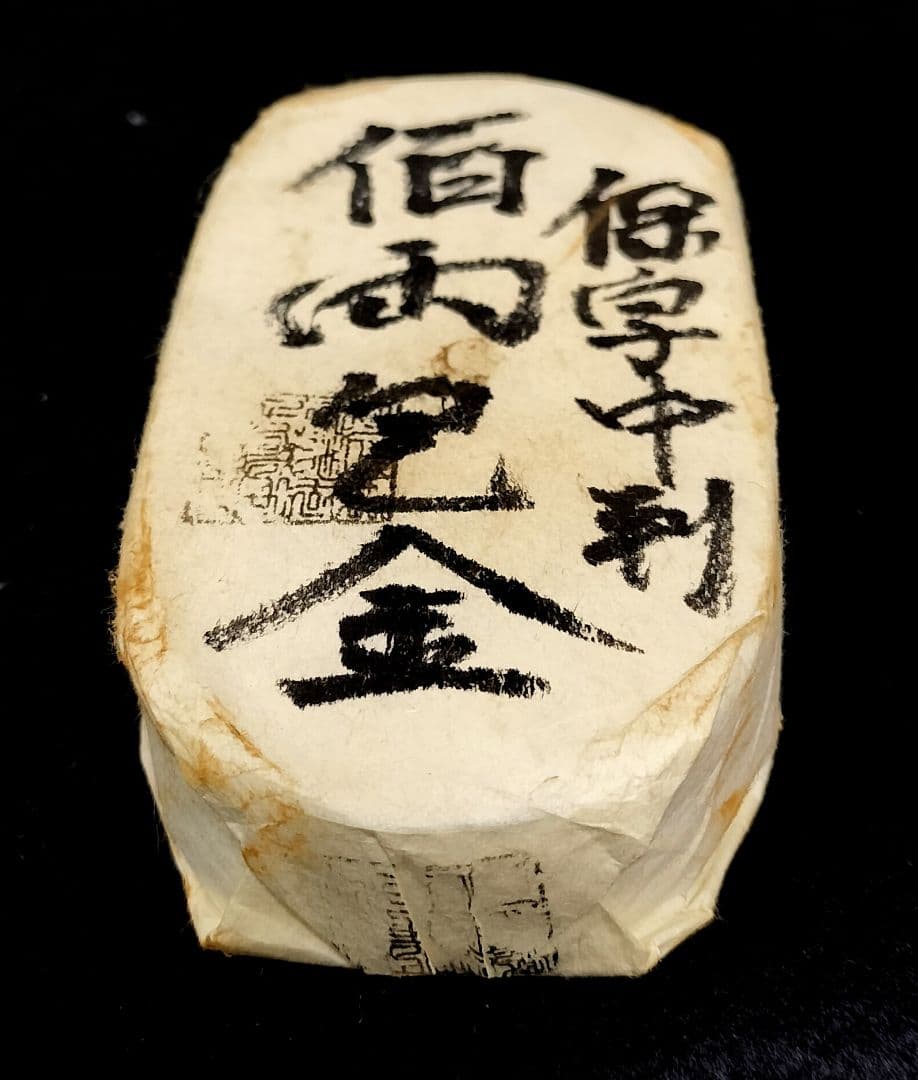 保字中判
佰両包金